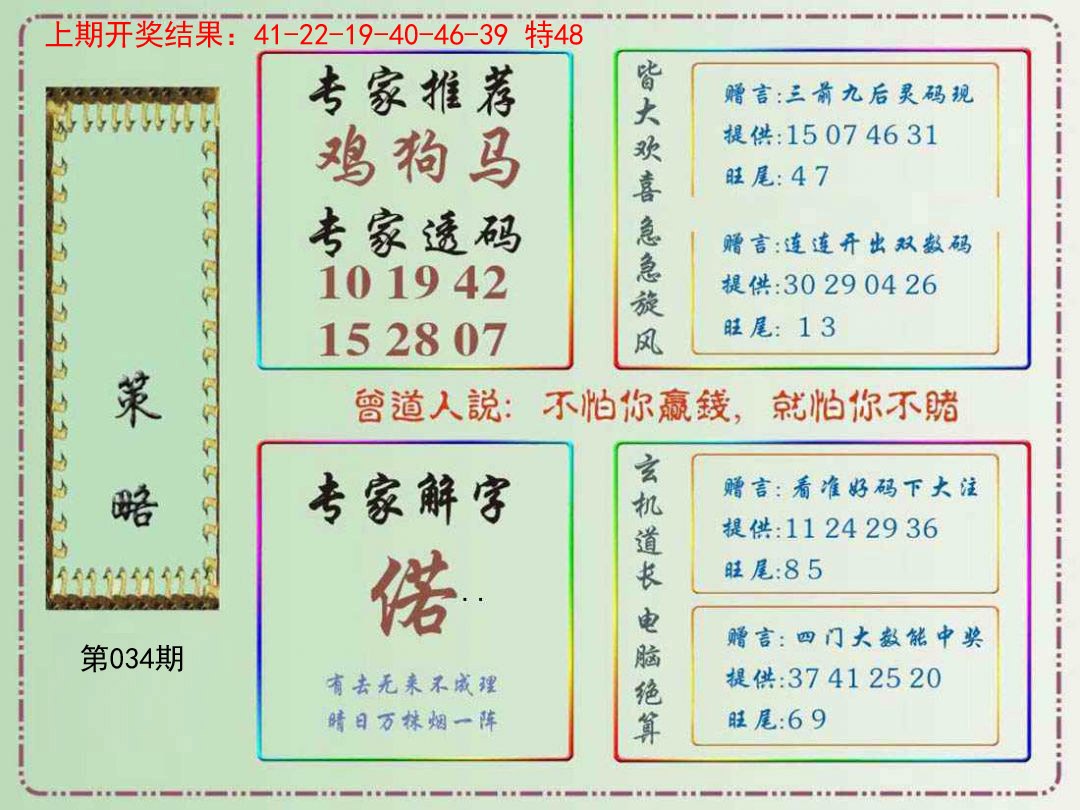 上期开奖结果：41-22-19-40-46-39 特48
策略
第034期
专家推荐
鸡狗马
专家透码
10 19 42
15 28 07
皆大欢喜
赠言:三前九后灵码现
提供:15 07 46 31
旺尾: 4 7
急急旋风
赠言:连连开出双数码
提供:30 29 04 26
旺尾: 1 3
曾道人説: 不怕你贏錢, 就怕你不賭
专家解字
偌..
有去无来不成理
晴日万株烟一阵
玄机道长
赠言: 看准好码下大注
提供:11 24 29 36
旺尾:8 5
电脑绝算
赠言: 四门大数能中奖
提供:37 41 25 20
旺尾:6 9